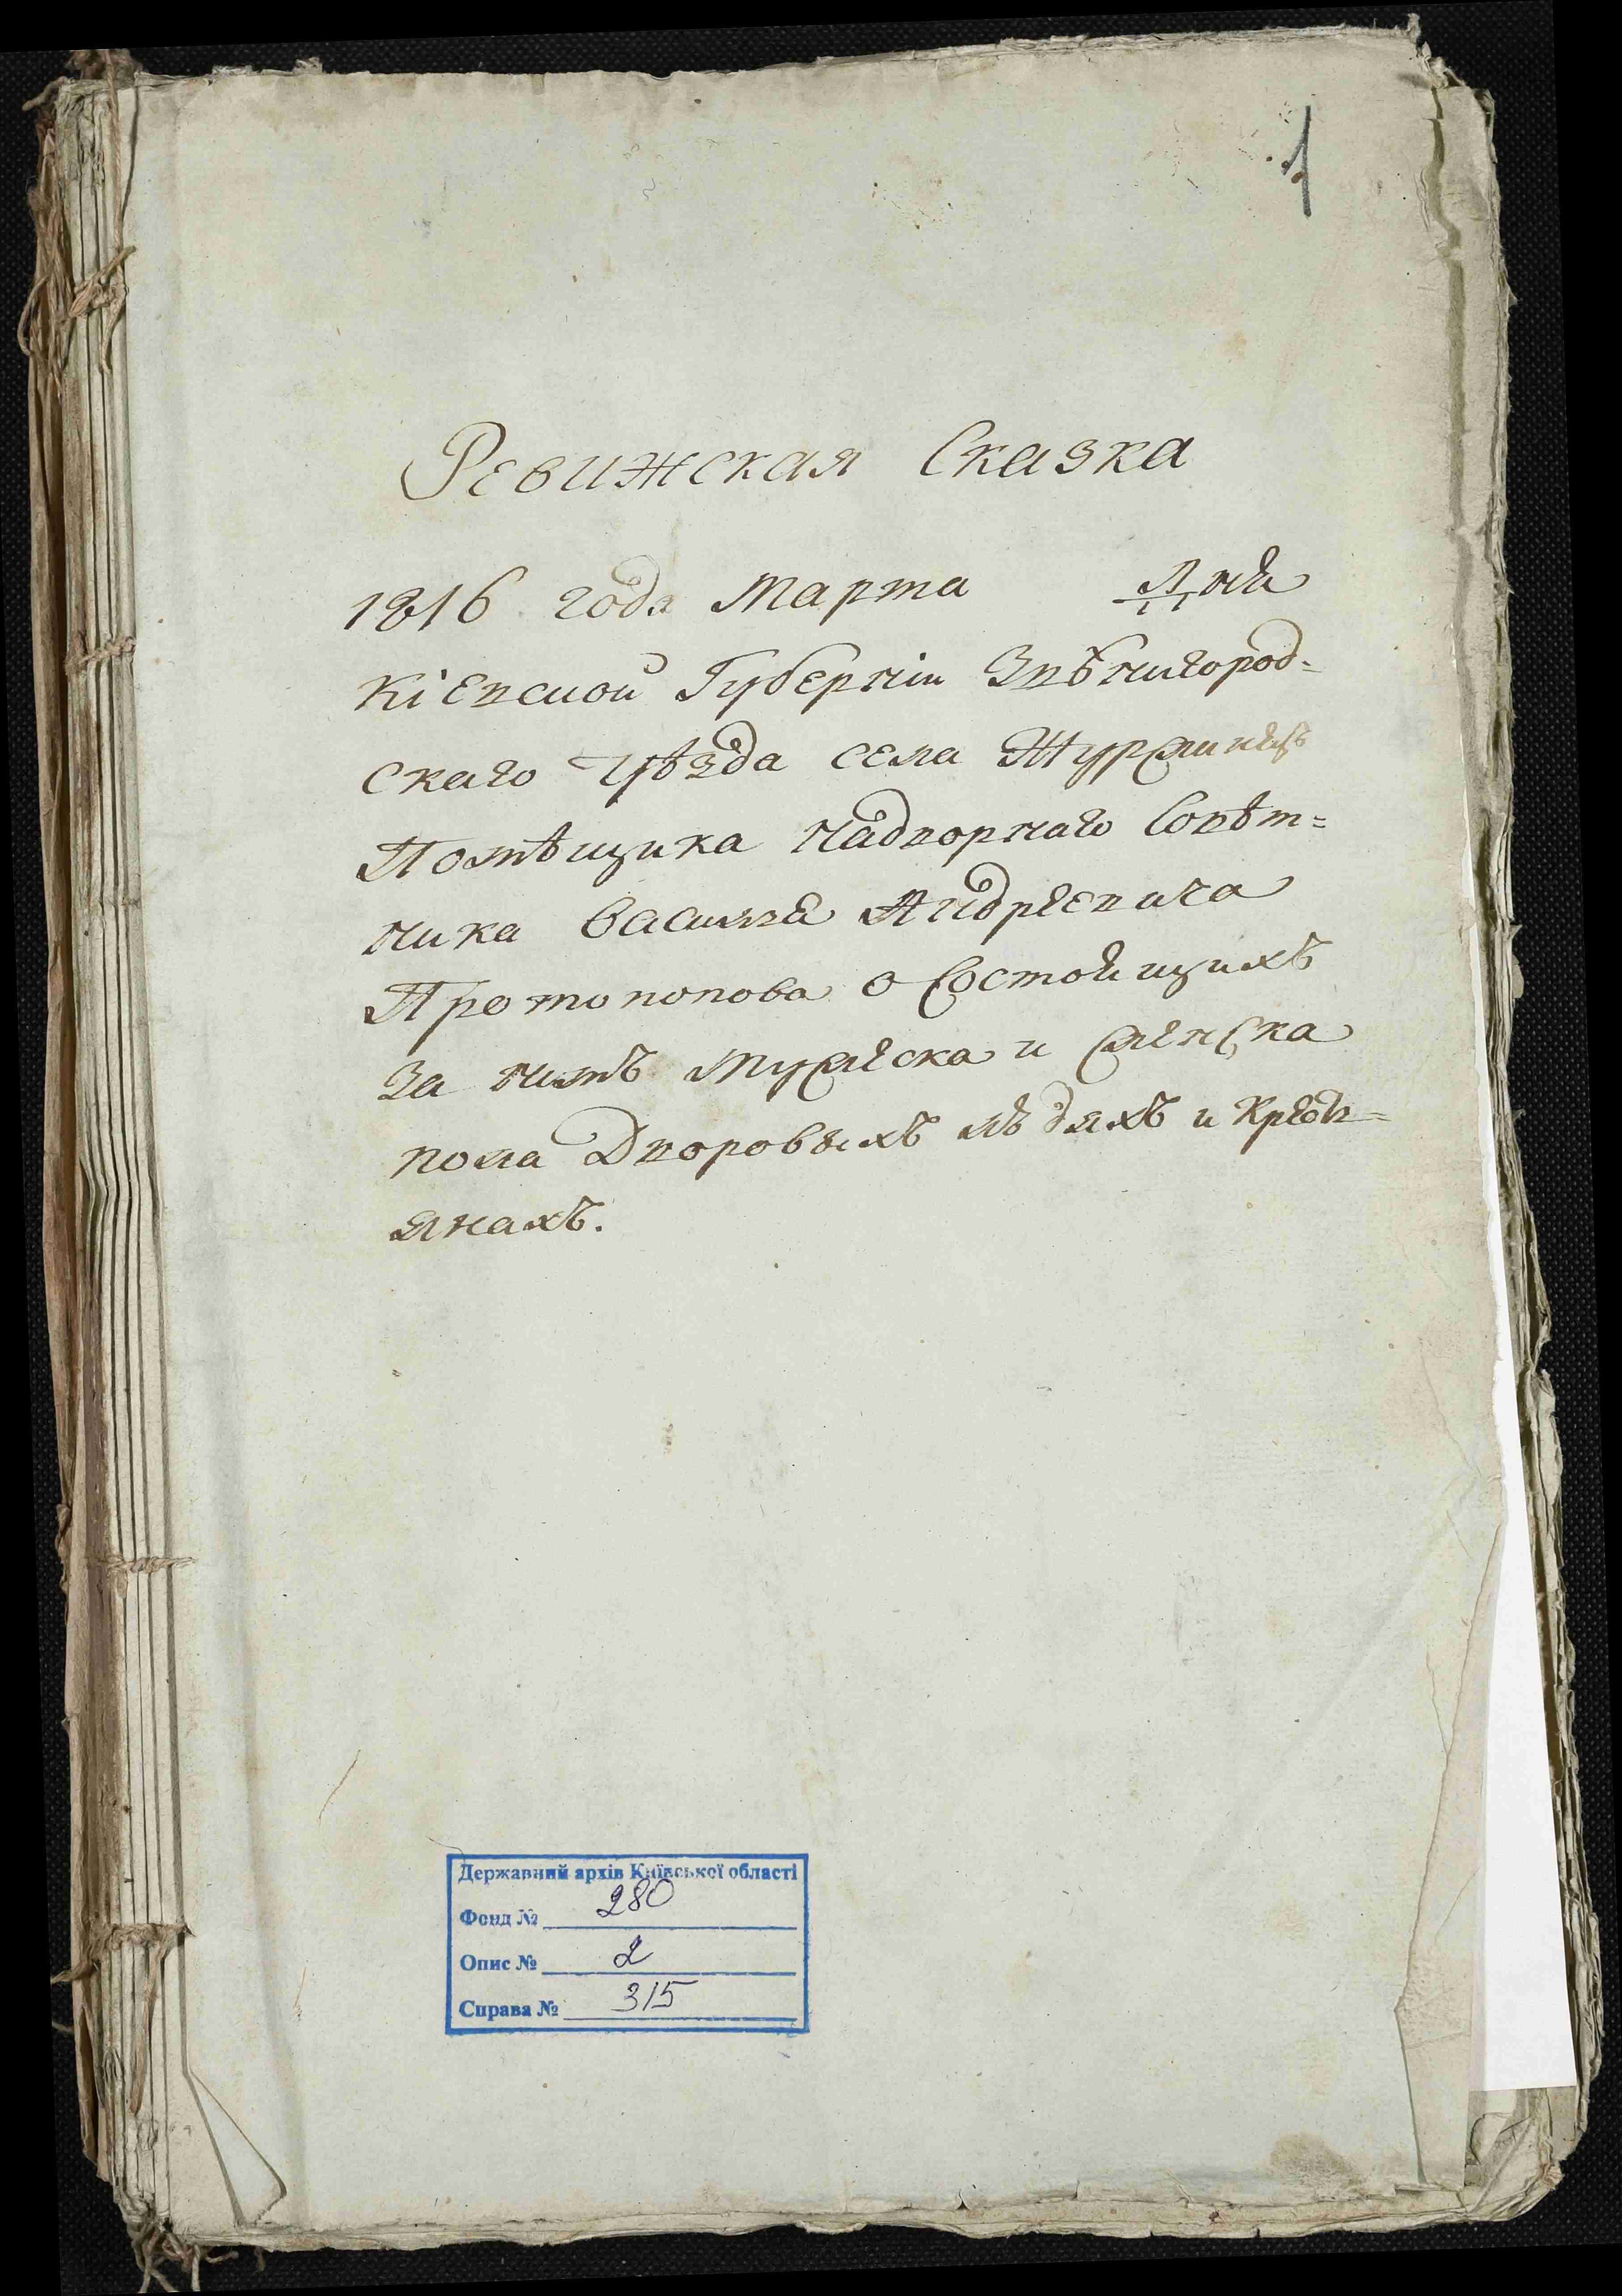 1
Ревижская Сказка
1816 года Марта Дня
Кіевской Губерніи Звѣнигород-
скаго Уѣзда села Журжинцъ
Помѣщика Надворнаго Совѣт=
ника Василія Андреевича
Протопопова о Состоящихъ
За нимъ мужеска и женска
пола Дворовыхъ людяхъ и Крестъ=
янахъ.
Державний архів Київської області
Фонд № 280
Опис № 2
Справа № 315